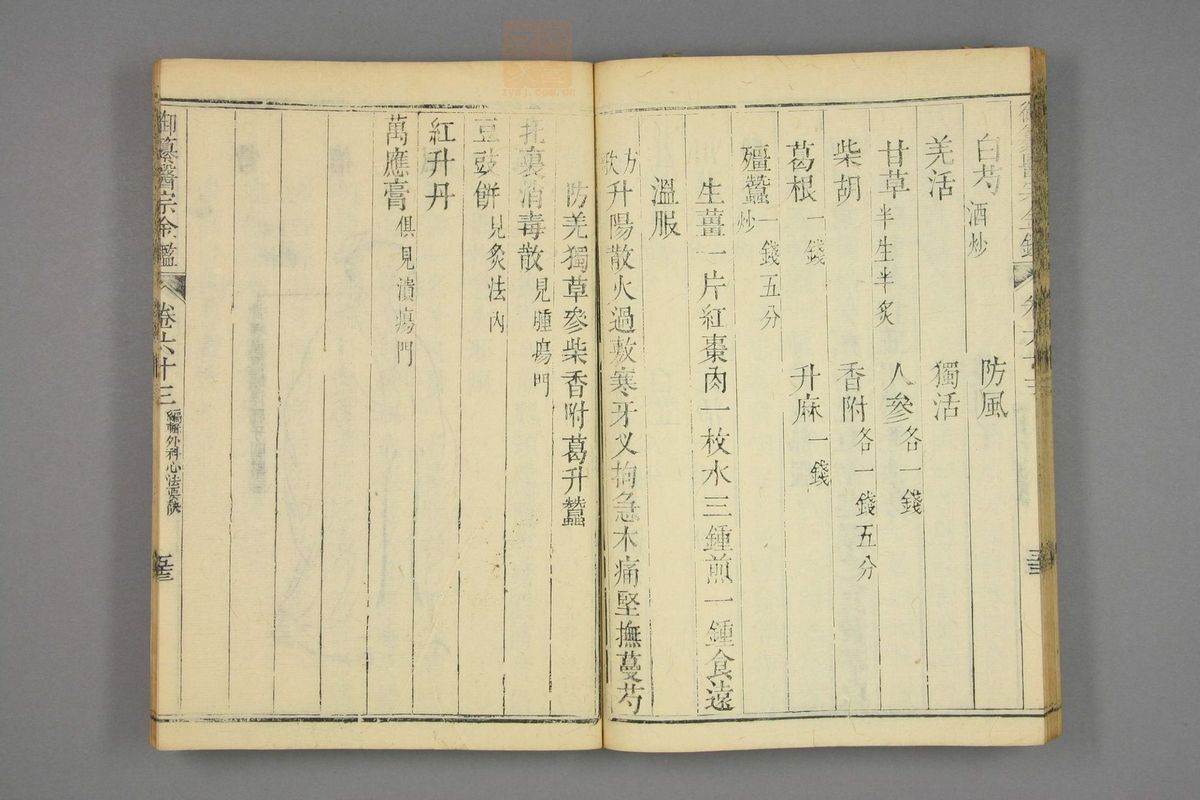 白芍酒炒 防風
羌活 獨活
甘草半生半炙 人參各一錢
柴胡 香附各一錢五分
葛根一錢 升麻一錢
殭蠶炒一錢五分
生薑一片紅棗肉一枚水三鍾煎一鍾食遠
溫服
方歌升陽散火過敷寒牙叉拘急木痛堅撫蔓芍
防羌獨草參柴香附葛升蠶
托裏消毒散見腫瘍門
豆豉餅見灸法內
紅升丹
萬應膏俱見潰瘍門
御纂醫宗金鑑 卷六十三 編輯外科心法要訣 五三